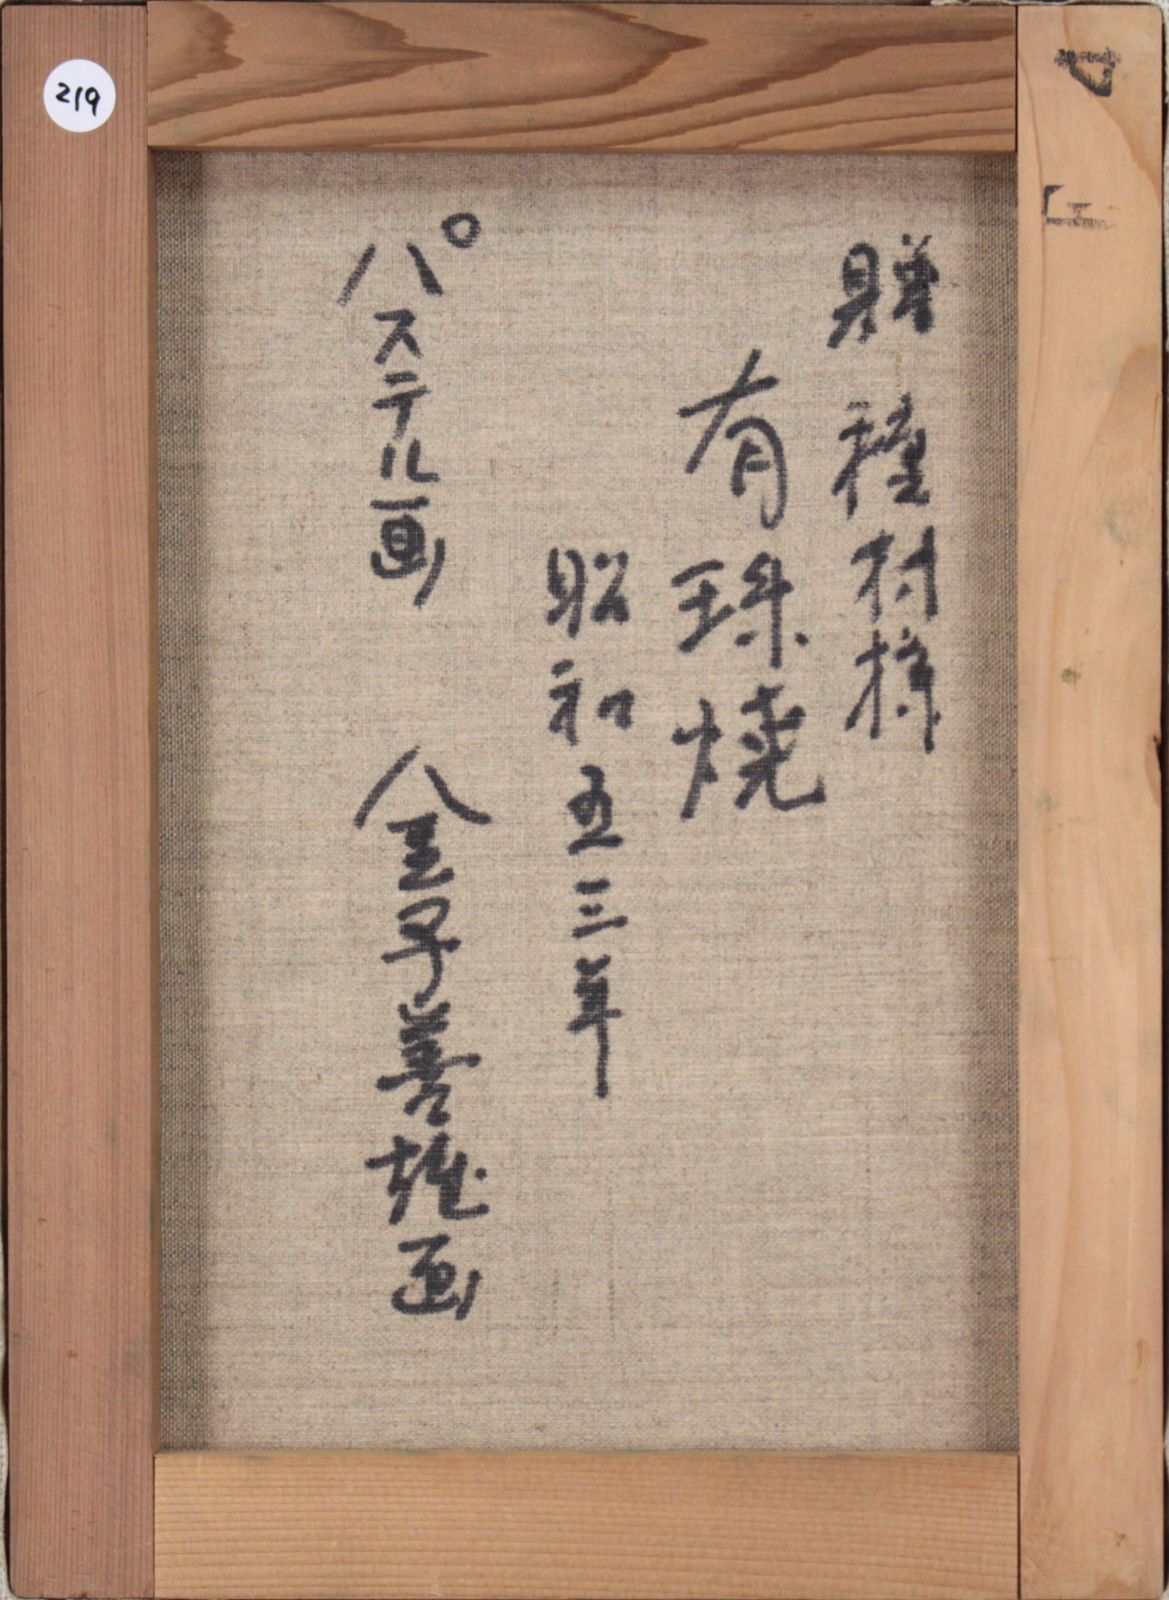 贈 種村様
有珠焼
昭和五三年
パステル画 金子善雄画
219